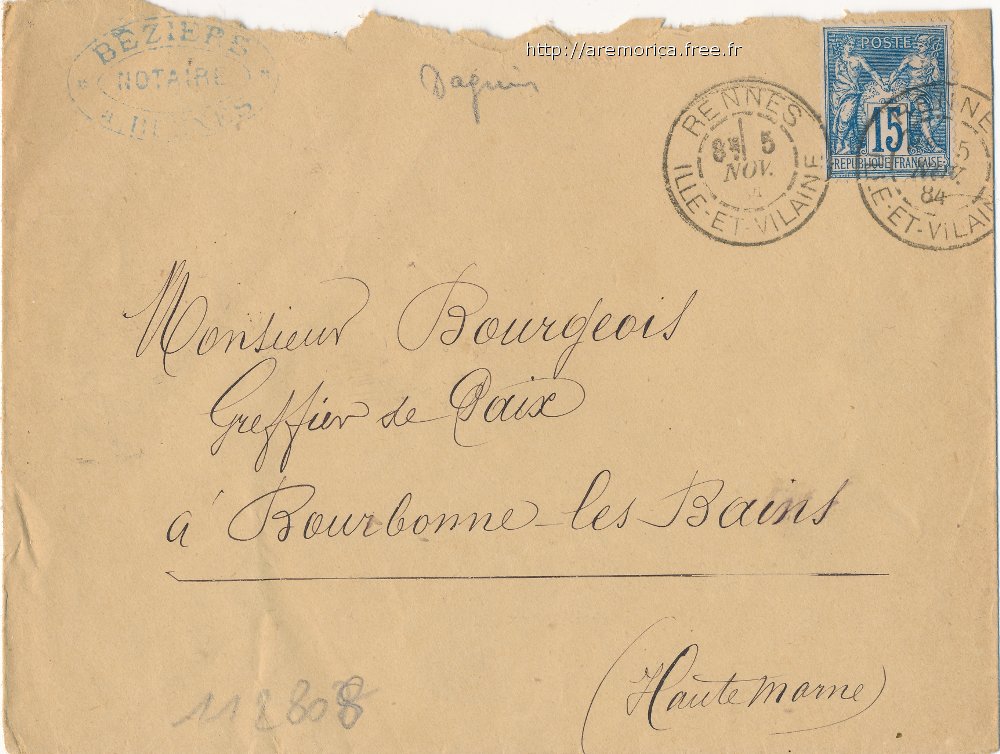 http://aremorica.free.fr
BÉZIERS
NOTAIRE
A RENNES
Daguin
RENNES
8E 5
NOV.
ILLE-ET-VILAINE
POSTE
15
REPUBLIQUE FRANÇAISE
RENNES
5
NOV.
84
ILLE-ET-VILAINE
Monsieur Bourgeois
Greffier de Paix
à Bourbonne-les-Bains
(Haute Marne)
118808